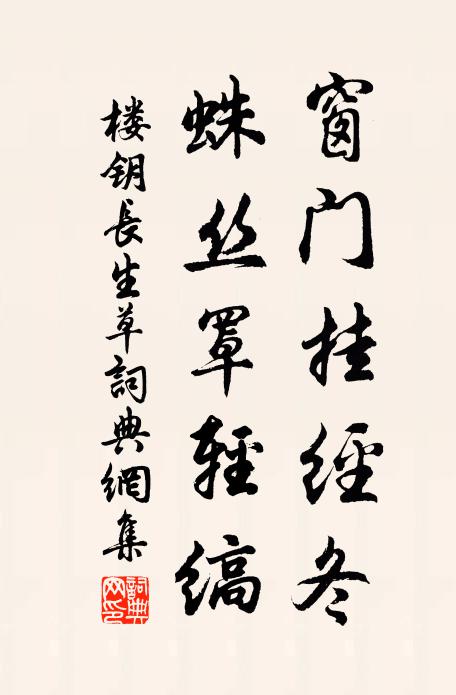 窗门挂經冬
蛛丝罩輕縞
楼钥長生草詞典網集
詞典网印